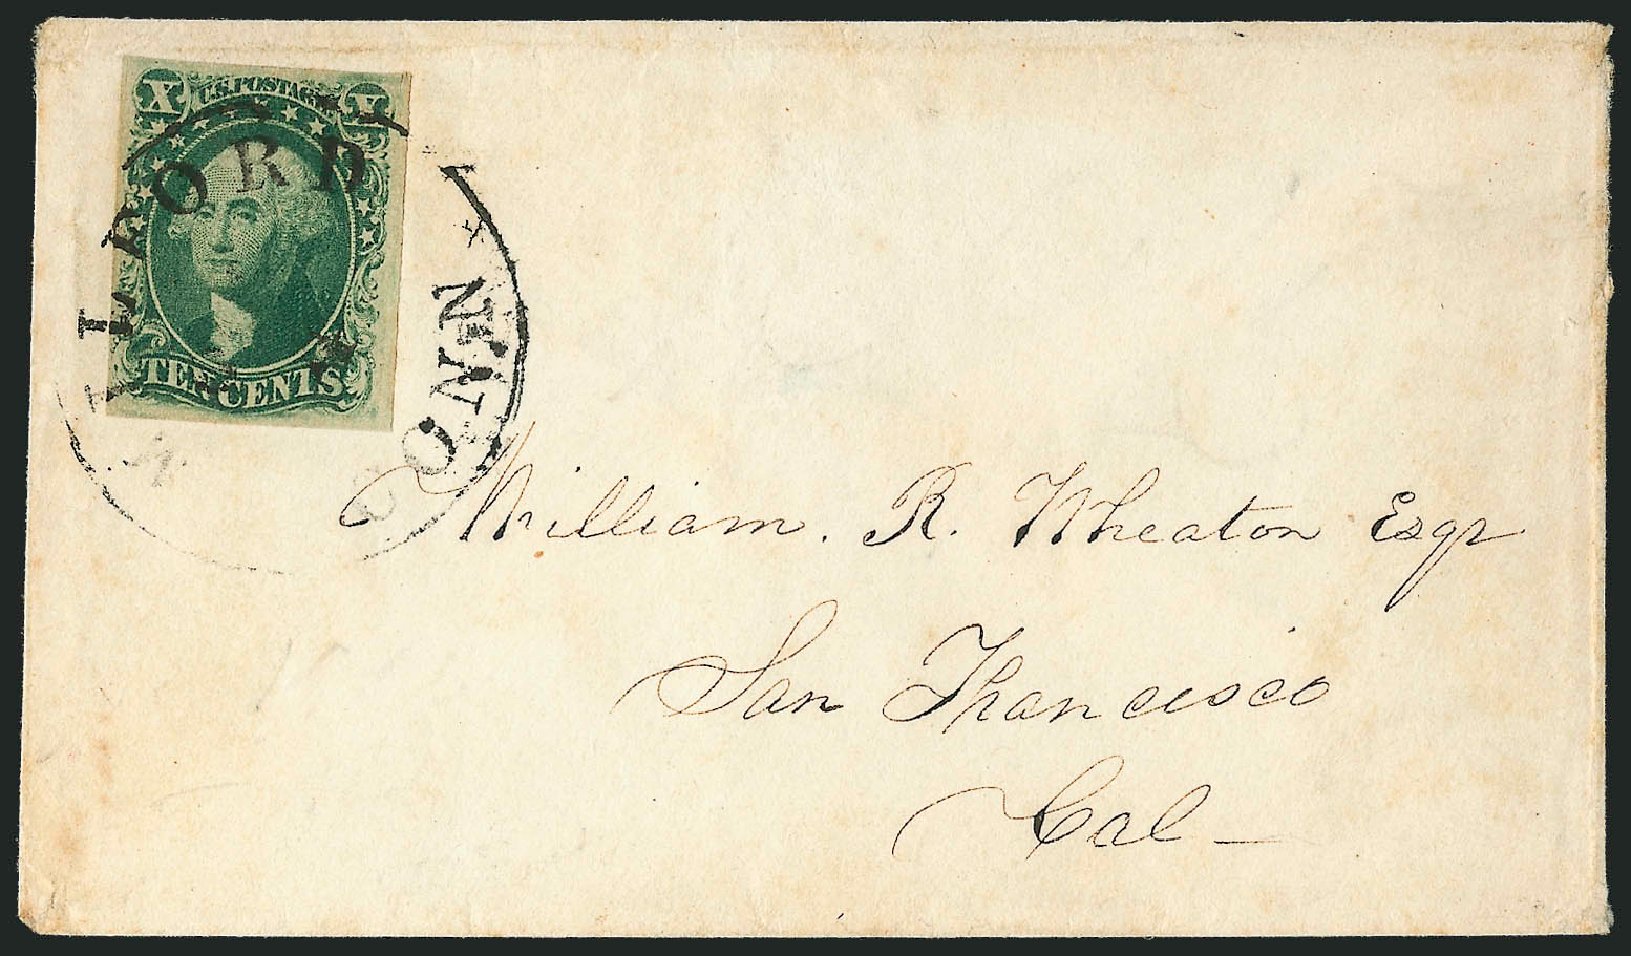 X U.S.POSTAGE X
TEN CENTS
MILFORD CONN
William. R. Wheaton Esqr
San Francisco
Cal –